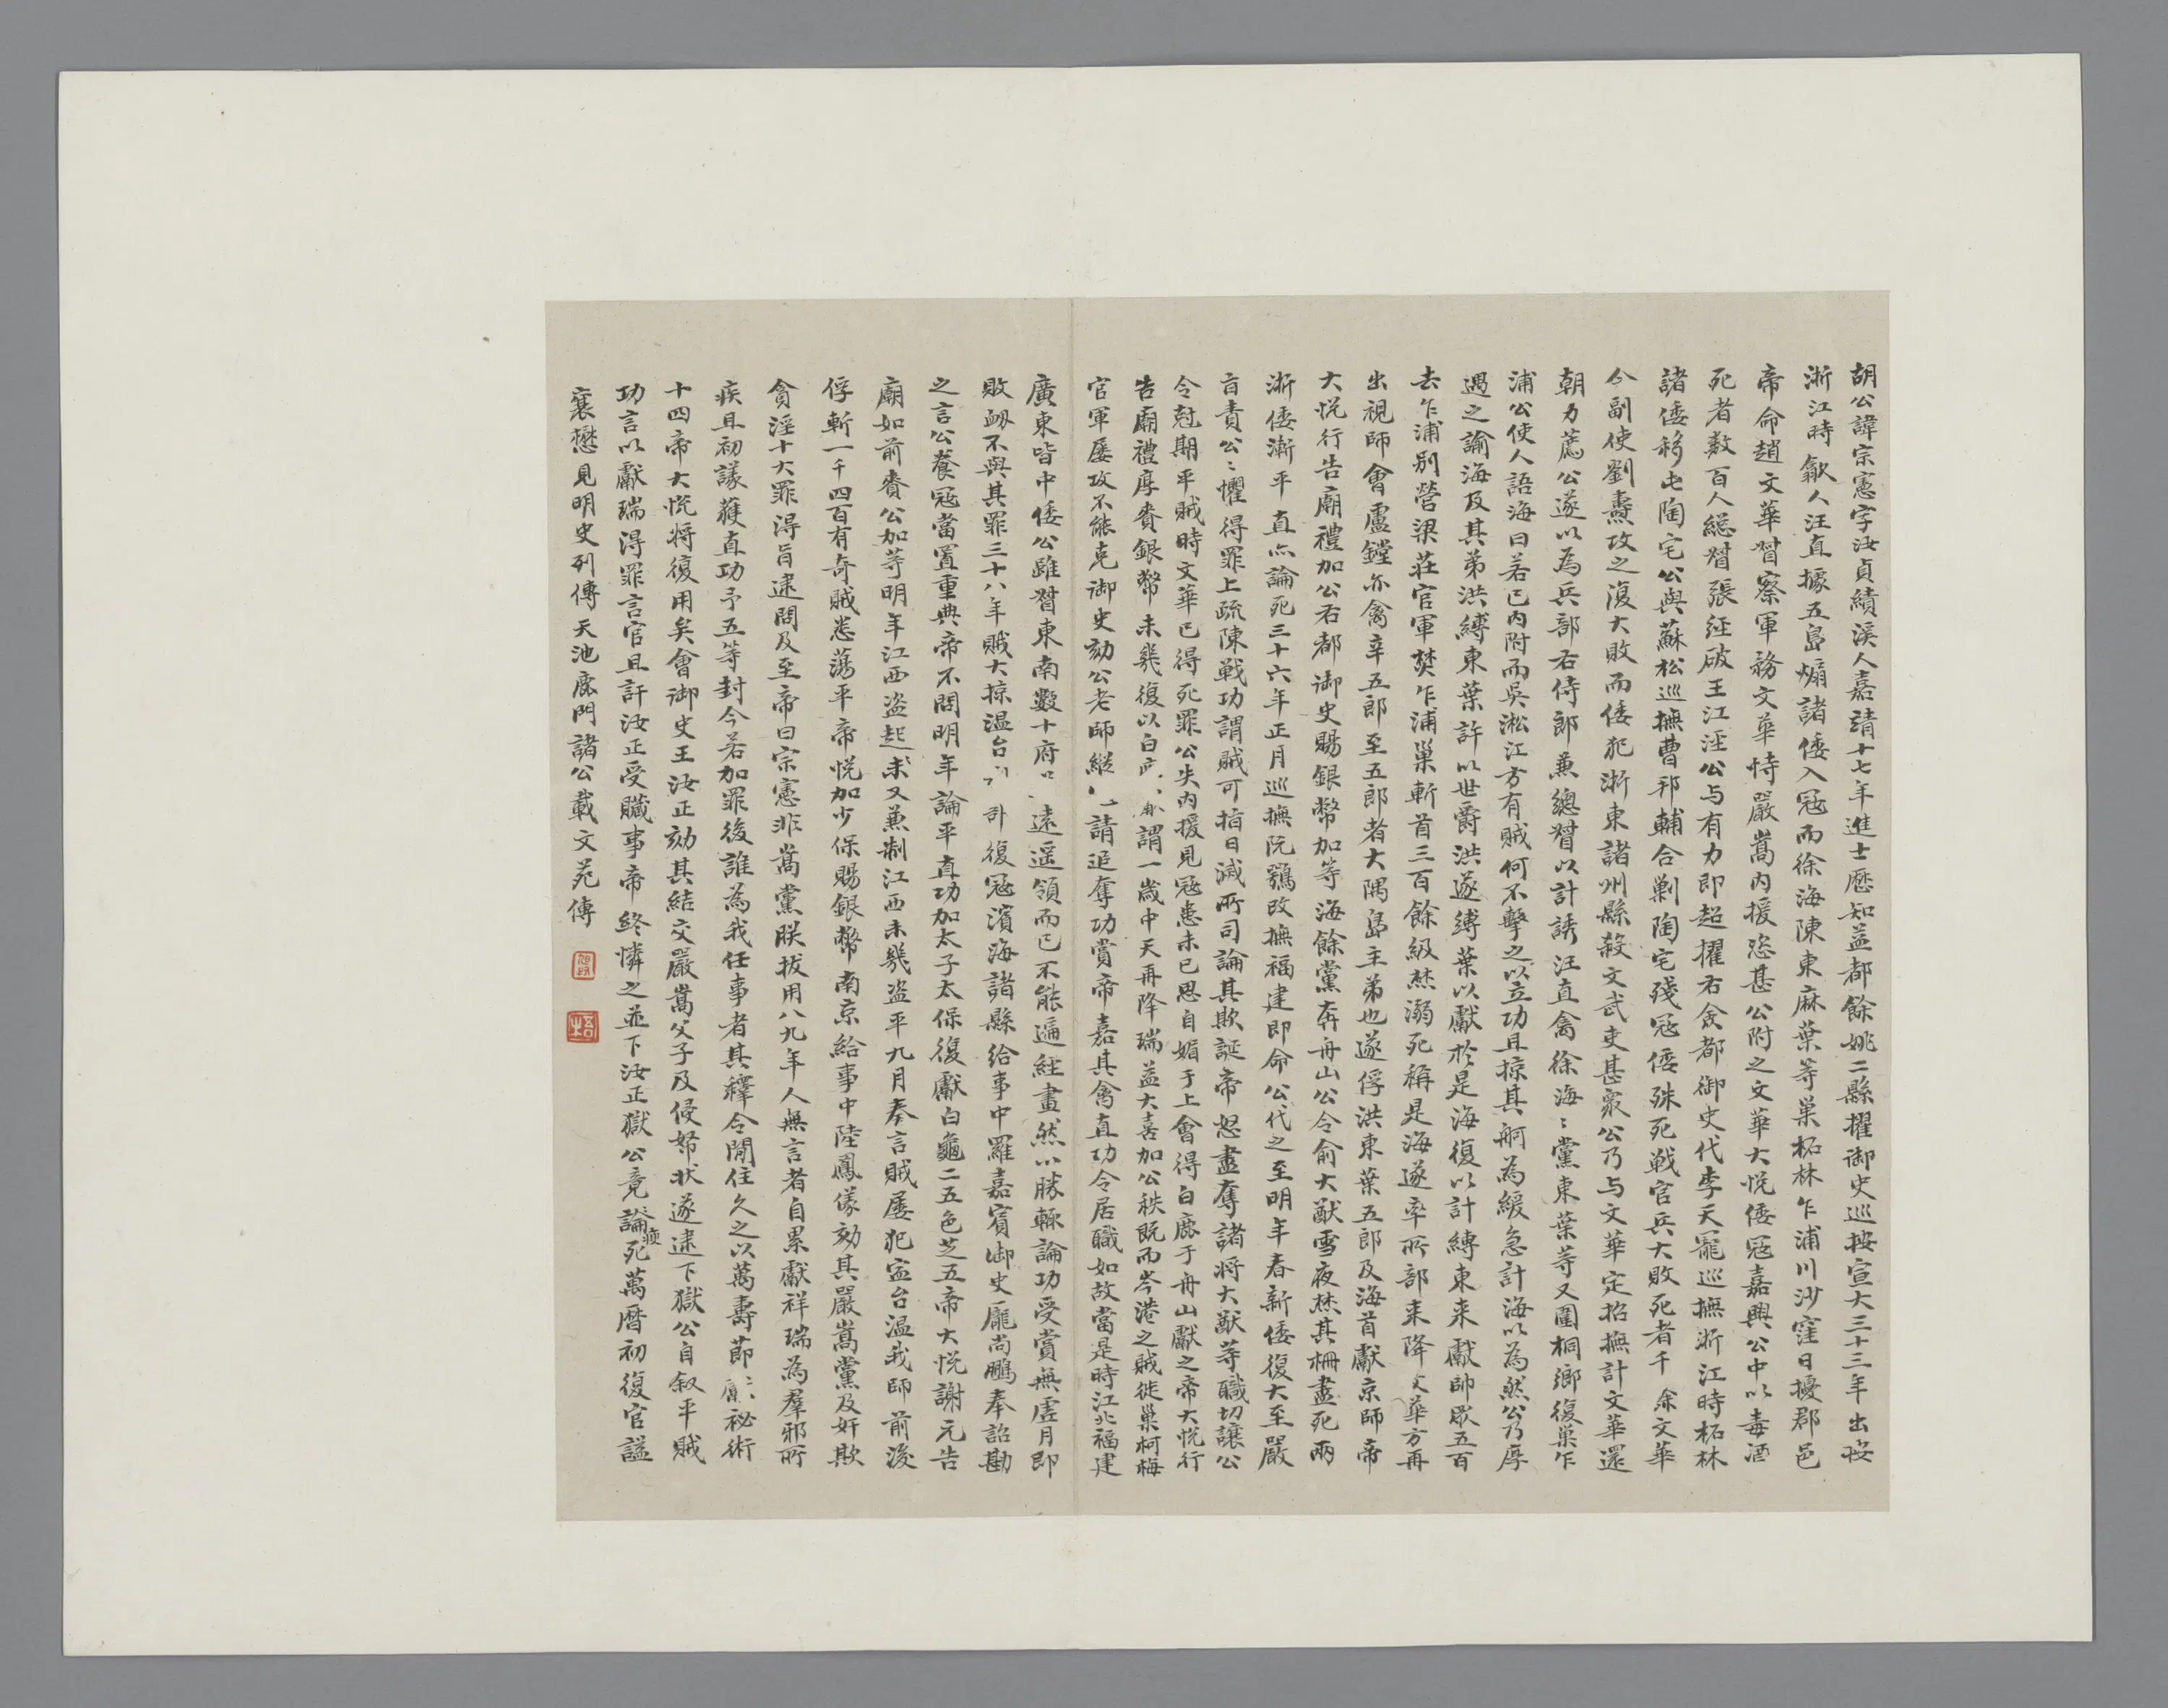 胡公諱宗憲字汝貞績溪人嘉靖十七年進士歷知益都餘姚二縣擢御史巡按宣大三十三年出按
浙江時歙人汪直據五島煽諸倭入寇而徐海陳東麻葉等巢柘林乍浦川沙窪日擾郡邑
帝命趙文華督察軍務文華恃嚴嵩內援恣甚公附之文華大悅倭寇嘉興公中以毒酒
死者數百人總督張經破王江涇公与有力即超擢右僉都御史代李天寵巡撫浙江時柘林
諸倭移屯陶宅公與蘇松巡撫曹邦輔合剿陶宅殘寇倭殊死戰官兵大敗死者千余文華
令副使劉燾攻之復大敗而倭犯浙東諸州縣殺文武吏甚衆公乃与文華定招撫計文華還
朝力薦公遂以為兵部右侍郎兼總督以計誘汪直禽徐海〻黨東葉等又圍桐鄉復巢乍
浦公使人語海曰若已內附而吳淞江方有賊何不擊之以立功且掠其舸為緩急計海以為然公乃厚
遇之諭海及其弟洪縛東葉許以世爵洪遂縛葉以獻於是海復以計縛東来獻帥眾五百
去乍浦別營梁莊官軍焚乍浦巢斬首三百餘級焚溺死稱是海遂率所部来降文華方再
出視師會盧鏜亦禽辛五郎至五郎者大隅島主弟也遂俘洪東葉五郎及海首獻京師帝
大悅行告廟禮加公右都御史賜銀幣加等海餘黨奔舟山公令俞大猷雪夜焚其柵盡死兩
浙倭漸平直亦論死三十六年正月巡撫阮鶚改撫福建即命公代之至明年春新倭復大至嚴
旨責公〻懼得罪上疏陳戰功謂賊可指日滅所司論其欺誕帝怒盡奪諸將大猷等職切讓公
令尅期平賊時文華已得死罪公失內援見寇患未已思自媚于上會得白鹿于舟山獻之帝大悅行
告廟禮厚賚銀幣未幾復以白鹿獻謂一歲中天再降瑞益大喜加公秩既而岑港之賊徙巢柯梅
官軍屢攻不能克御史劾公老師縱請追奪功賞帝嘉其禽直功令居職如故當是時江北福建
廣東皆中倭公雖督東南數十府遠遥領而已不能遍經畫然以勝輒論功受賞無虛月即
敗衂不與其罪三十八年賊大掠溫台復寇濱海諸縣給事中羅嘉賓御史龐尚鵬奉詔勘
之言公養寇當置重典帝不問明年論平直功加太子太保復獻白龜二五色芝五帝大悅謝元告
廟如前賚公加等明年江西盜起求又兼制江西未幾盜平九月奏言賊屢犯寧台溫我師前後
俘斬一千四百有奇賊悉蕩平帝悅加少保賜銀幣南京給事中陸鳳儀劾其嚴嵩黨及奸欺
貪淫十大罪得旨逮問及至帝曰宗憲非嵩黨朕拔用八九年人無言者自累獻祥瑞為羣邪所
疾且初議獲直功予五等封今若加罪後誰為我任事者其釋令閒住久之以萬壽節獻祕術
十四帝大悅將復用矣會御史王汝正劾其結交嚴嵩父子及侵帑狀遂逮下獄公自叙平賊
功言以獻瑞得罪言官且訐汝正受贓事帝終憐之並下汝正獄公竟論瘐死萬曆初復官諡
襄懋見明史列傳天池鹿門諸公載文苑傳